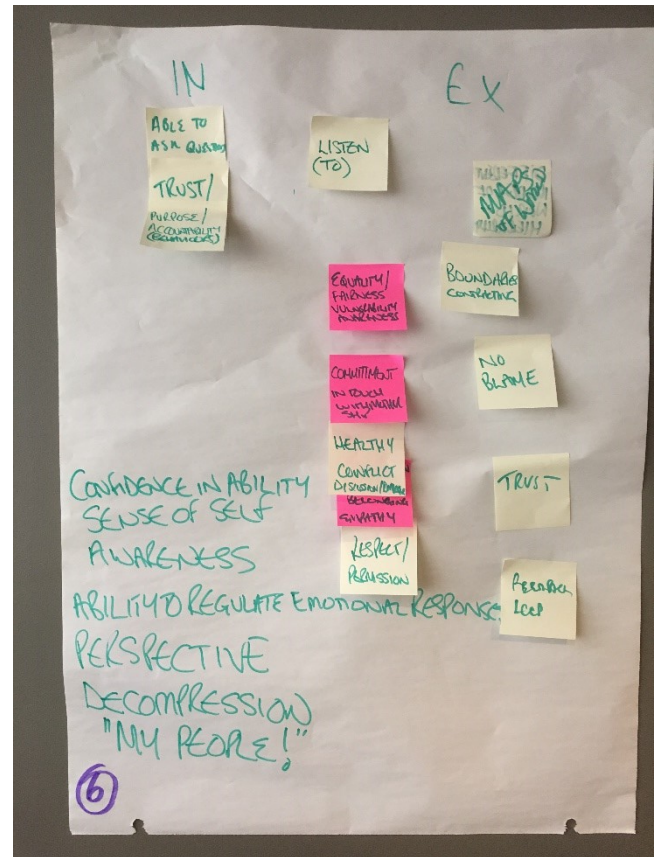 IN
EX
ABLE TO
ASK QUESTIONS
TRUST/
PURPOSE/
ACCOUNTABILITY
(BEHAVIOURS)
LISTEN
(TO)
MAPS
OF WORLD
EQUALITY/
FAIRNESS
VULNERABILITY
AWARENESS
BOUNDARIES
CONTRACTING
COMMITMENT
IN TOUCH
WITH
NO
BLAME
HEALTHY
CONFLICT
BELONGING
EMPATHY
TRUST
RESPECT/
PERMISSION
FEEDBACK
LOOP
CONFIDENCE IN ABILITY
SENSE OF SELF
AWARENESS
ABILITY TO REGULATE EMOTIONAL RESPONSE
PERSPECTIVE
DECOMPRESSION
"MY PEOPLE!"
6